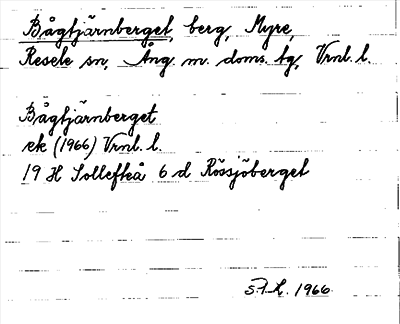 Bågtjärnberget, berg, Myre,
Resele sn, Ång. m. doms. tg, Vrnl. l.
Bågtjärnberget
ek (1966) Vrnl. l.
19 H Sollefteå 6 d Rössjöberget
S.F.L. 1966